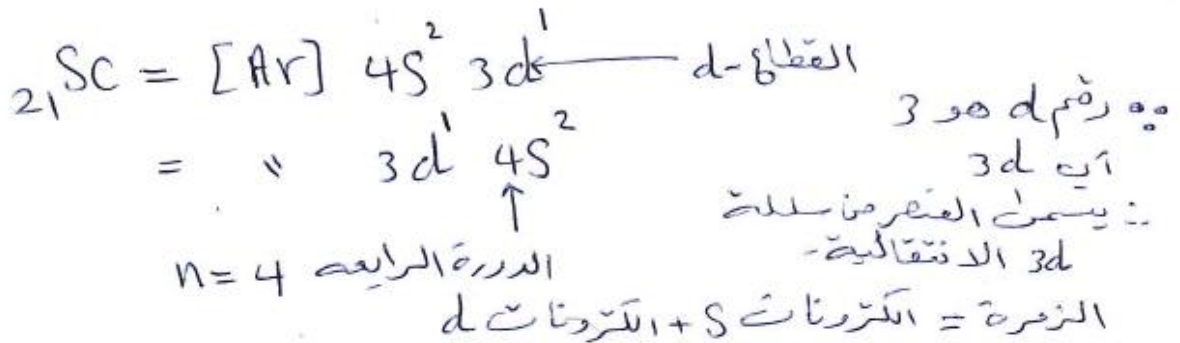 ₂₁Sc = [Ar] 4S² 3d¹ ← القطاع-d
∵ رقم d هو 3
= 〃 3d¹ 4S²
أي 3d
∴ يسمى العنصر من سلسلة
3d الانتقالية.
n = 4 الدورة الرابعه
الزمرة = الكترونات S + الكترونات d